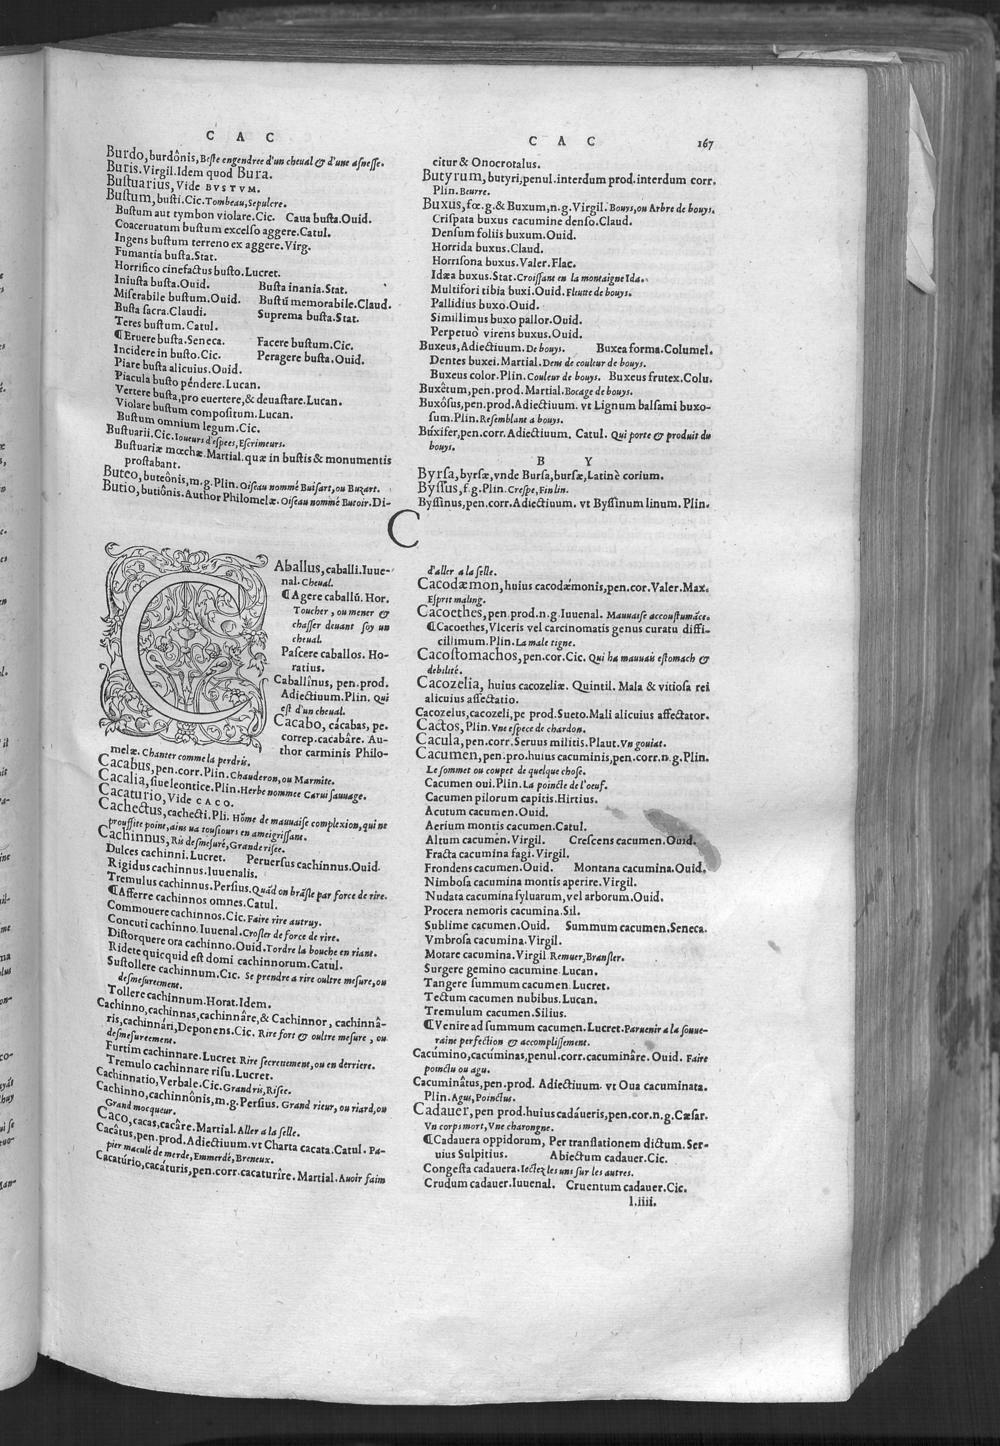 C A C
Burdo, burdônis, Beſte engendree d'un cheual & d'une aſneſſe.
Buris. Virgil. Idem quod Bura.
Buſtuarius, Vide BVSTVM.
Buſtum, buſti. Cic. Tombeau, Sepulcre.
Buſtum aut tymbon violare. Cic. Caua buſta. Ouid.
Coaceruatum buſtum excelſo aggere. Catul.
Ingens buſtum terreno ex aggere. Virg.
Fumantia buſta. Stat.
Horrifico cinefactus buſto. Lucret.
Iniuſta buſta. Ouid. Buſta inania. Stat.
Miſerabile buſtum. Ouid. Buſtũ memorabile. Claud.
Buſta ſacra. Claudi. Suprema buſta. Stat.
Teres buſtum. Catul.
¶ Eruere buſta. Seneca. Facere buſtum. Cic.
Incidere in buſto. Cic. Peragere buſta. Ouid.
Piare buſta alicuius. Ouid.
Piacula buſto péndere. Lucan.
Vertere buſta, pro euertere, & deuaſtare. Lucan.
Violare buſtum compoſitum. Lucan.
Buſtum omnium legum. Cic.
Buſtuarii. Cic. Ioueurs d'eſpees, Eſcrimeurs.
Buſtuariæ mœchæ. Martial. quæ in buſtis & monumentis
proſtabant.
Buteo, buteônis, m. g. Plin. Oiſeau nommé Buiſart, ou Buzart.
Butio, butiônis. Author Philomelæ. Oiſeau nommé Butoir. Di-
C A C 167
citur & Onocrotalus.
Butyrum, butyri, penul. interdum prod. interdum corr.
Plin. Beurre.
Buxus, fœ. g. & Buxum, n. g. Virgil. Bouys, ou Arbre de bouys.
Criſpata buxus cacumine denſo. Claud.
Denſum foliis buxum. Ouid.
Horrida buxus. Claud.
Horriſona buxus. Valer. Flac.
Idæa buxus. Stat. Croiſſant en la montaigne Ida.
Multifori tibia buxi. Ouid. Fleutte de bouys.
Pallidius buxo. Ouid.
Simillimus buxo pallor. Ouid.
Perpetuò virens buxus. Ouid.
Buxeus, Adiectiuum. De bouys. Buxea forma. Columel.
Dentes buxei. Martial. Dens de couleur de bouys.
Buxeus color. Plin. Couleur de bouys. Buxeus frutex. Colu.
Buxêtum, pen. prod. Martial. Bocage de bouys.
Buxôſus, pen. prod. Adiectiuum. vt Lignum balſami buxo-
ſum. Plin. Reſemblant a bouys.
Búxifer, pen. corr. Adiectiuum. Catul. Qui porte & produit du
bouys.
B Y
Byrſa, byrſæ, vnde Burſa, burſæ, Latinè corium.
Byſſus, f. g. Plin. Creſpe, Fin lin.
Byſſinus, pen. corr. Adiectiuum. vt Byſſinum linum. Plin.
C
CAballus, caballi. Iuue-
nal. Cheual.
¶ Agere caballũ. Hor.
Toucher, ou mener &
chaſſer deuant ſoy un
cheual.
Paſcere caballos. Ho-
ratius.
Caballînus, pen. prod.
Adiectiuum. Plin. Qui
eſt d'un cheual.
Cacabo, cácabas, pe.
correp. cacabâre. Au-
thor carminis Philo-
melæ. Chanter comme la perdris.
Cacabus, pen. corr. Plin. Chauderon, ou Marmite.
Cacalia, ſiue leontice. Plin. Herbe nommee Carui ſauuage.
Cacaturio, Vide CACO.
Cachectus, cachecti. Pli. Hõme de mauuaiſe complexion, qui ne
prouffite point, ains ua touſiours en ameigriſſant.
Cachinnus, Ris deſmeſuré, Grande riſee.
Dulces cachinni. Lucret. Peruerſus cachinnus. Ouid.
Rigidus cachinnus. Iuuenalis.
Tremulus cachinnus. Perſius. Quãd on brãſle par force de rire.
¶ Afferre cachinnos omnes. Catul.
Commouere cachinnos. Cic. Faire rire autruy.
Concuti cachinno. Iuuenal. Croſler de force de rire.
Diſtorquere ora cachinno. Ouid. Tordre la bouche en riant.
Ridete quicquid eſt domi cachinnorum. Catul.
Suſtollere cachinnum. Cic. Se prendre a rire oultre meſure, ou
deſmeſureement.
Tollere cachinnum. Horat. Idem.
Cachinno, cachinnas, cachinnâre, & Cachinnor, cachinnâ-
ris, cachinnári, Deponens. Cic. Rire fort & oultre meſure, ou
deſmeſureement.
Furtim cachinnare. Lucret. Rire ſecretement, ou en derriere.
Tremulo cachinnare riſu. Lucret.
Cachinnatio, Verbale. Cic. Grand ris, Riſee.
Cachinno, cachinnônis, m. g. Perſius. Grand rieur, ou riard, ou
Grand mocqueur.
Caco, cacas, cacâre. Martial. Aller a la ſelle.
Cacâtus, pen. prod. Adiectiuum. vt Charta cacata. Catul. Pa-
pier maculé de merde, Emmerdé, Breneux.
Cacatúrio, cacáturis, pen. corr. cacaturîre. Martial. Auoir faim
d'aller a la ſelle.
Cacodæmon, huius cacodǽmonis, pen. cor. Valer. Max.
Eſprit maling.
Cacoethes, pen. prod. n. g. Iuuenal. Mauuaiſe accouſtumãce.
¶ Cacoethes, Vlceris vel carcinomatis genus curatu diffi-
cillimum. Plin. La male tigne.
Cacoſtomachos, pen. cor. Cic. Qui ha mauuais eſtomach &
debilité.
Cacozelia, huius cacozeliæ. Quintil. Mala & vitioſa rei
alicuius affectatio.
Cacozelus, cacozeli, pe prod. Sueto. Mali alicuius affectator.
Cactos, Plin. Vne eſpece de chardon.
Cacula, pen. corr. Seruus militis. Plaut. Vn gouiat.
Cacumen, pen. pro. huius cacuminis, pen. corr. n. g. Plin.
Le ſommet ou coupet de quelque choſe.
Cacumen oui. Plin. La poincte de l'oeuf.
Cacumen pilorum capitis. Hirtius.
Acutum cacumen. Ouid.
Aerium montis cacumen. Catul.
Altum cacumen. Virgil. Creſcens cacumen. Ouid.
Fracta cacumina fagi. Virgil.
Frondens cacumen. Ouid. Montana cacumina. Ouid.
Nimboſa cacumina montis aperire. Virgil.
Nudata cacumina ſyluarum, vel arborum. Ouid.
Procera nemoris cacumina. Sil.
Sublime cacumen. Ouid. Summum cacumen. Seneca.
Vmbroſa cacumina. Virgil.
Motare cacumina. Virgil Remuer, Branſler.
Surgere gemino cacumine. Lucan.
Tangere ſummum cacumen. Lucret.
Tectum cacumen nubibus. Lucan.
Tremulum cacumen. Silius.
¶ Venire ad ſummum cacumen. Lucret. Paruenir a la ſouue-
raine perfection & accompliſſement.
Cacumino, cacúminas, penul. corr. cacuminâre. Ouid. Faire
poinctu ou agu.
Cacuminâtus, pen. prod. Adiectiuum. vt Oua cacuminata.
Plin. Agus, Poinctus.
Cadauer, pen prod. huius cadáueris, pen. cor. n. g. Cæſar.
Vn corps mort, Vne charongne.
¶ Cadauera oppidorum, Per tranſlationem dictum. Ser-
uius Sulpitius. Abiectum cadauer. Cic.
Congeſta cadauera. Iectez les uns ſur les autres.
Crudum cadauer. Iuuenal. Cruentum cadauer. Cic.
l. iiii.